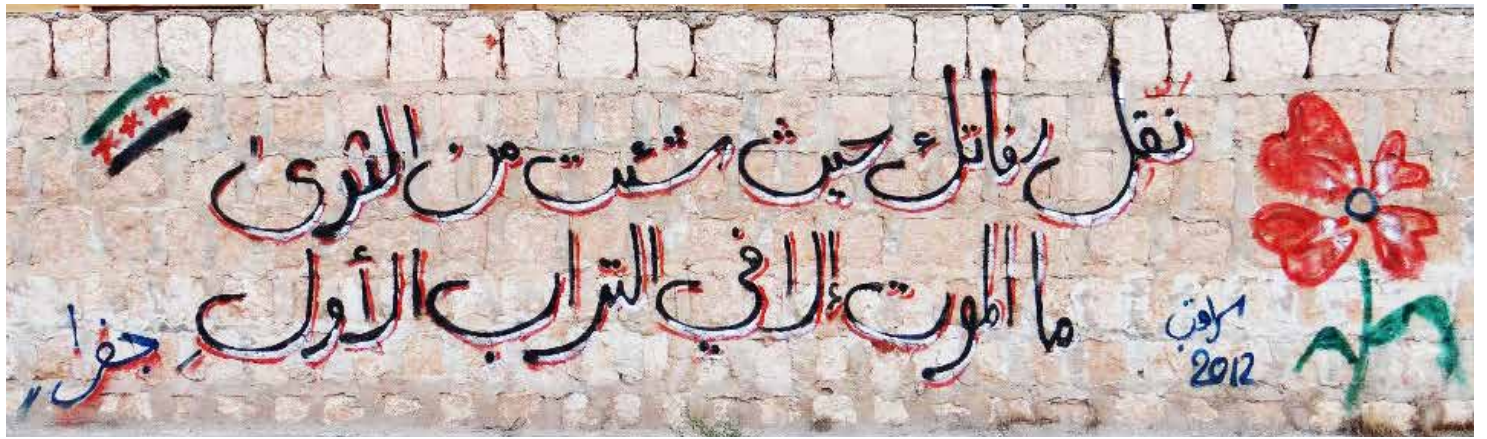 نَقِّل رفاتك حيث شئت من الثرى
ما الموت إلا في التراب الأولِ
سراقب
2012
جفرا